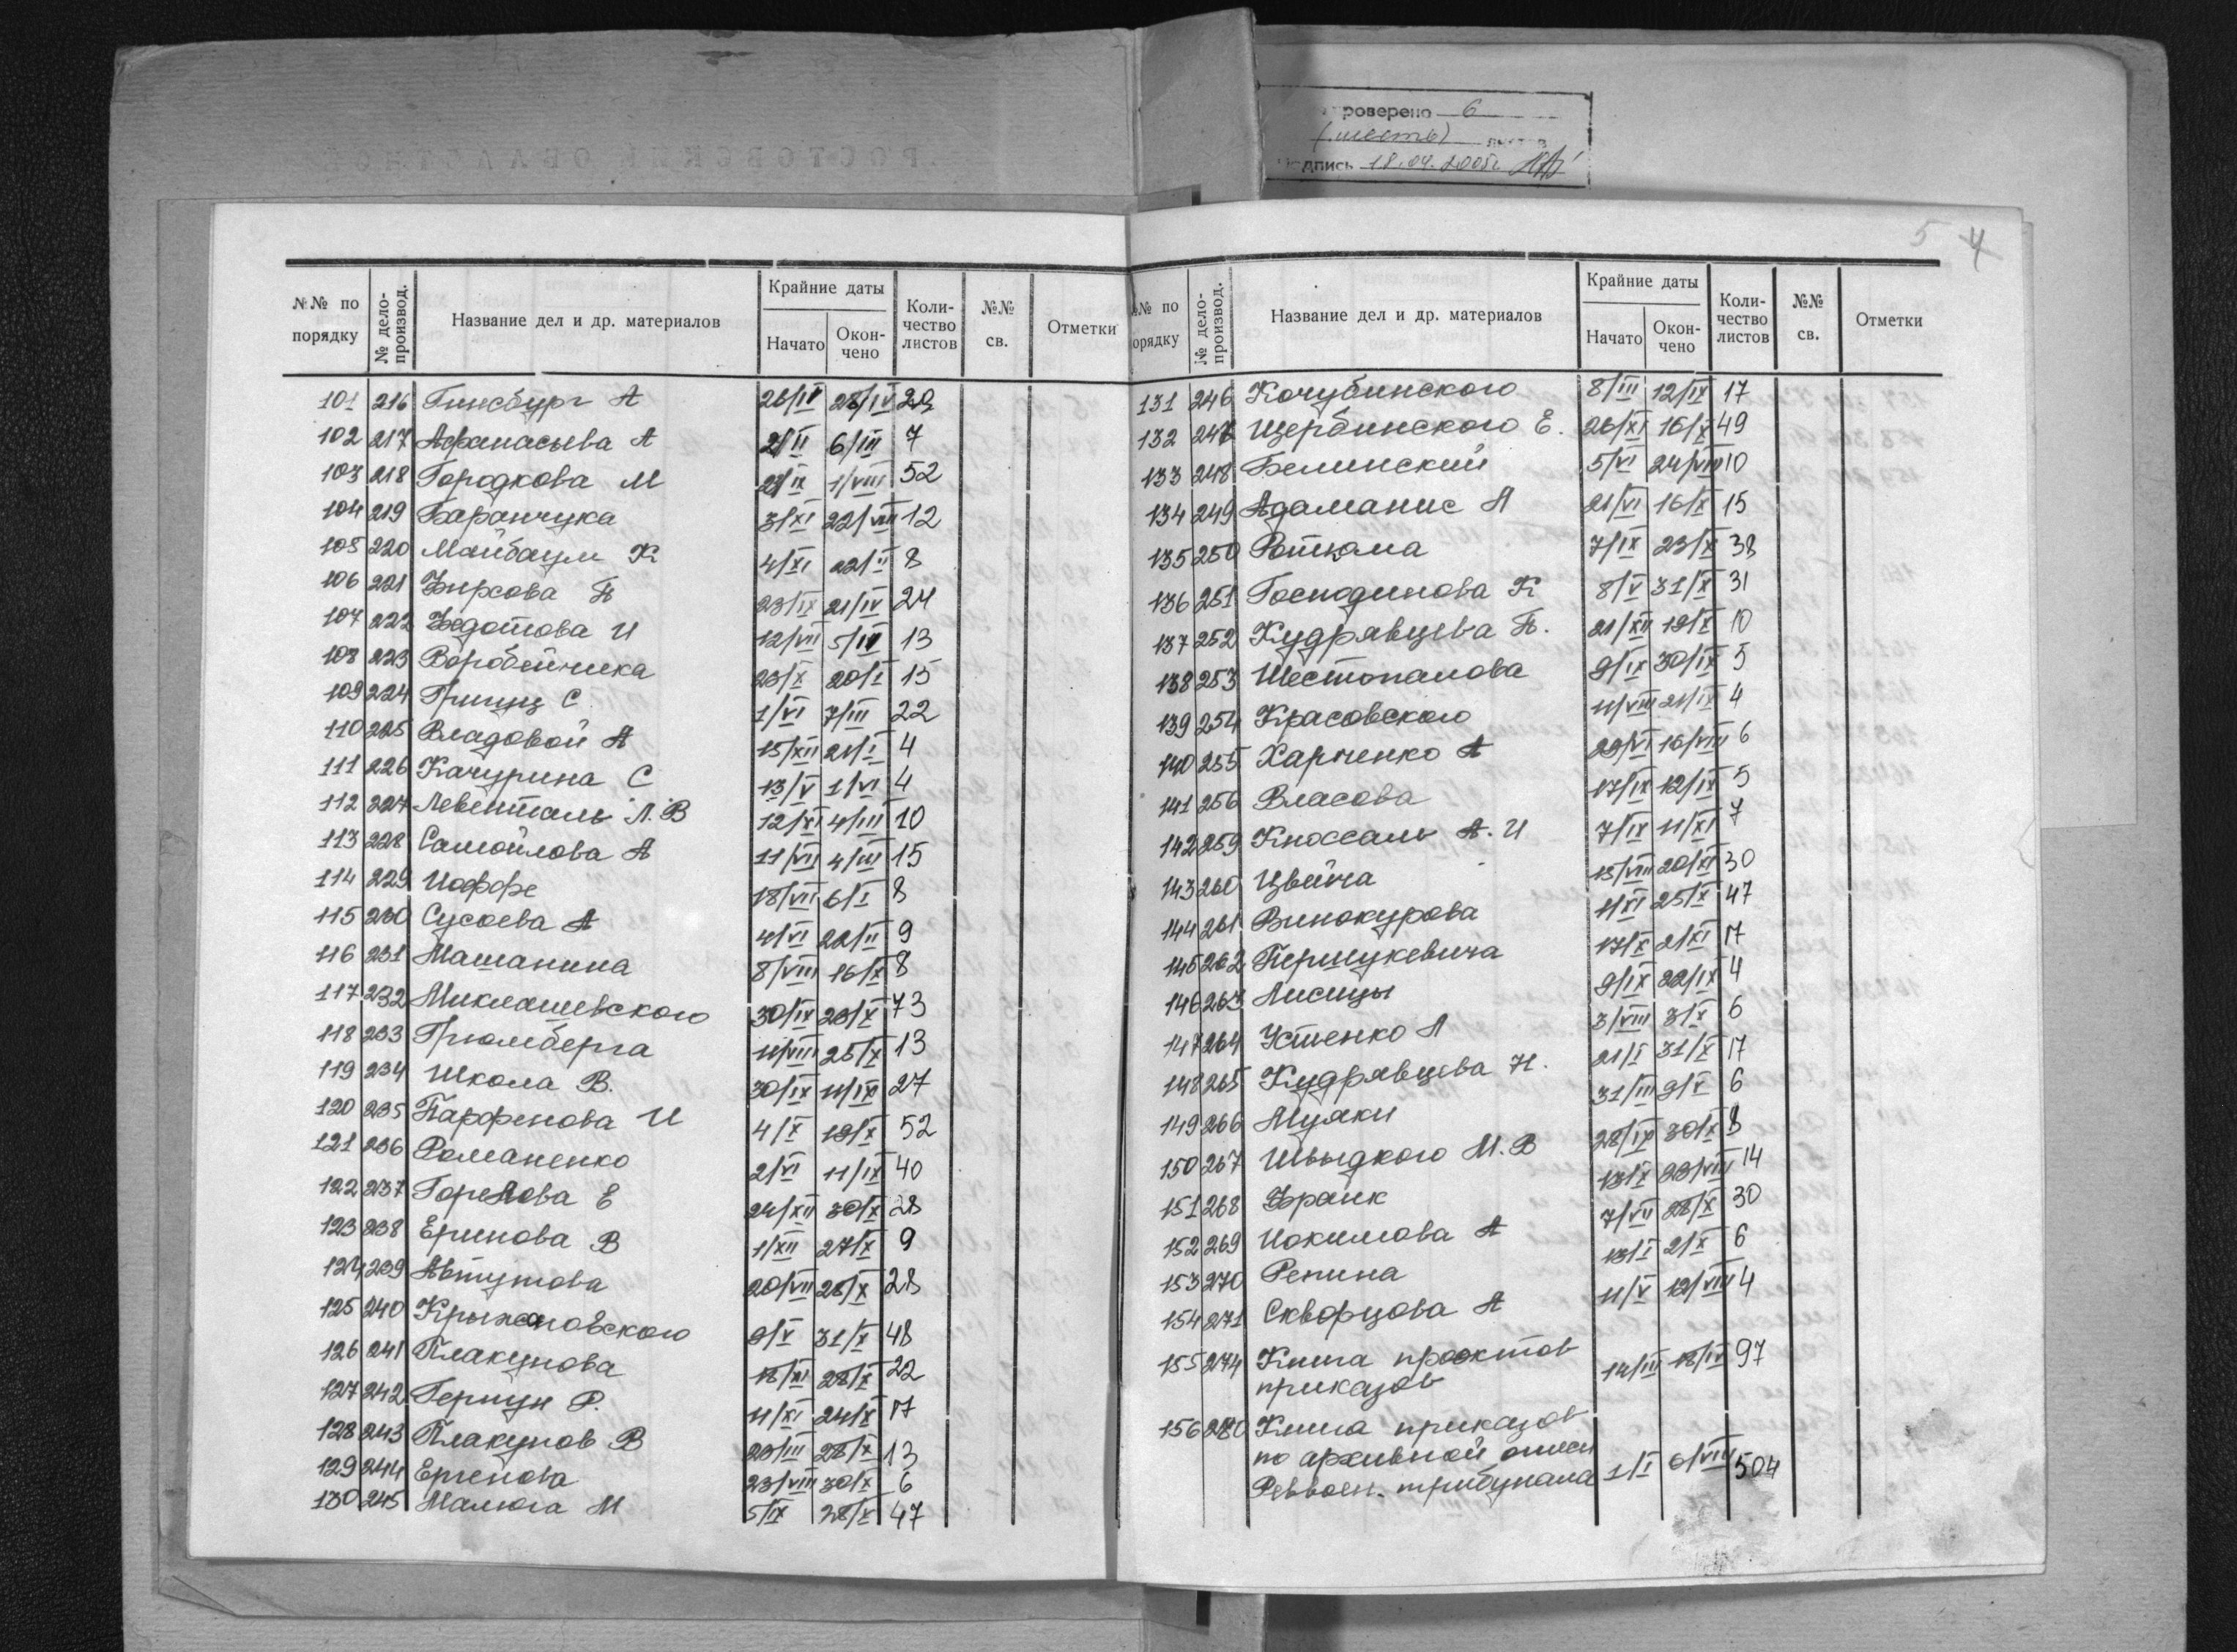 РОСТОВСКИЙ ОБЛАСТНОЙ
роверено 6
(шесть)
дпись 18.04.2005г.
№№ по порядку № дело-производ. Название дел и др. материалов Крайние даты Начато Окон-чено Коли-чество листов №№ св. Отметки
101 216 Гинсбург А 26/IV 28/IV 29
102 217 Афанасьева А 21/II 6/III 7
103 218 Городкова М 21/IX 1/VIII 52
104 219 Баранчука 31/XI 22/VIII 12
105 220 Майбаум К 4/XI 22/II 8
106 221 Фирсова П 23/IX 21/IV 24
107 222 Федотова И 12/VII 13
108 223 Воробейчика 23/X 20/I 15
109 224 Гришц С 1/VI 7/III 22
110 225 Владовой А 15/XII 21/I 4
111 226 Качурина С 13/V 1/VI 4
112 227 Левенталь Л.В 12/XI 4/III 10
113 228 Самойлова А 11/VII 4/III 15
114 229 Иоффе 18/VII 6/I 8
115 230 Сусоева А 4/VI 22/II 9
116 231 Машанина 8/VIII 16/X 8
117 232 Миклашевского 30/IX 23/X 73
118 233 Грюмберга 11/VIII 25/X 13
119 234 Школа В. 30/IX 11/IX 27
120 235 Парфенова И 4/X 19/X 52
121 236 Романенко 2/VI 11/IX 40
122 237 Горелова Е 24/XII 30/X 28
123 238 Еринова В 1/XII 27/X 9
124 239 Автутова 20/VII 28/X 28
125 240 Крыжановского 9/V 31/X 48
126 241 Плакунова 18/XI 28/X 22
127 242 Гершун Р. 11/XI 24/X 17
128 243 Плакунов В 23/III 28/X 13
129 244 Ергенова 23/VIII 30/X 6
130 245 Малюга М 5/IX 28/X 47
5 4
№№ по орядку № дело-производ. Название дел и др. материалов Крайние даты Начато Окон-чено Коли-чество листов №№ св. Отметки
131 246 Кочубинского 8/III 12/IX 17
132 247 Щербинского Е. 26/XI 16/X 49
133 248 Белинский 5/VI 24/VIII 10
134 249 Адаманис А 21/VI 16/X 15
135 250 7/IX 23/X 38
136 251 Господинова К 8/V 31/X 31
137 252 Кудрявцева П. 21/XII 19/X 10
138 253 Шестопалова 9/IX 30/IX 5
139 254 Красовского 11/VIII 21/IX 4
140 255 Харченко А 29/VI 16/VIII 6
141 256 Власова 17/IX 12/IX 5
142 259 Кноссаль А.И 7/IX 11/XI 7
143 260 Цвейча 15/VIII 20/XI 30
144 261 Винокурова 11/XI 25/X 47
145 262 Першукевича 17/X 2/XI 17
146 263 Лисицы 9/IX 22/IX 4
147 264 Устенко А 3/VIII 3/X 6
148 265 Кудрявцева Н. 21/I 31/X 17
149 266 Муяки 31/III 9/X 6
150 267 Швыдкого М.В 28/IX 30/X 8
151 268 Франк 13/X 23/VIII 14
152 269 Иокимова А 7/VII 28/X 30
153 270 Репина 13/I 2/X 6
154 271 Скворцова А 11/V 12/VIII 4
155 274 Книга проектов 14/III 18/IV 97
приказов
156 280 Книга приказов
по архивной описи
Реввоен. трибунала 1/I 504